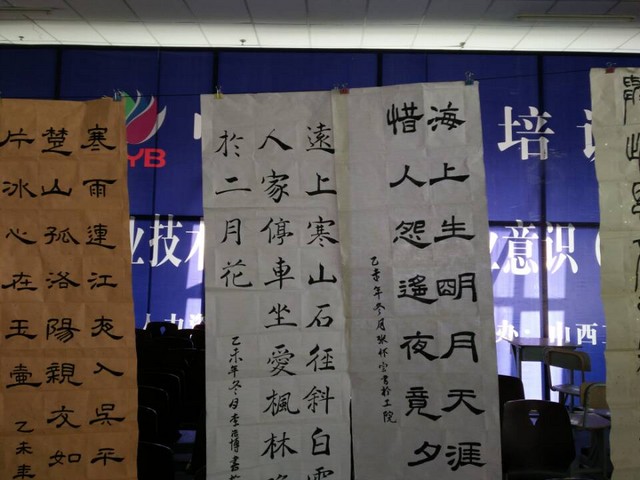 寒雨連江夜入吳平
楚山孤洛陽親友如
片冰心在玉壺
乙未年
遠上寒山石徑斜白雲
人家停車坐愛楓林晚
於二月花
乙未年冬月李
博書
海上生明月天涯
惜人怨遙夜竟夕
乙未年冬月
書於工院
YB
培
业技术
业意识（
办：山西